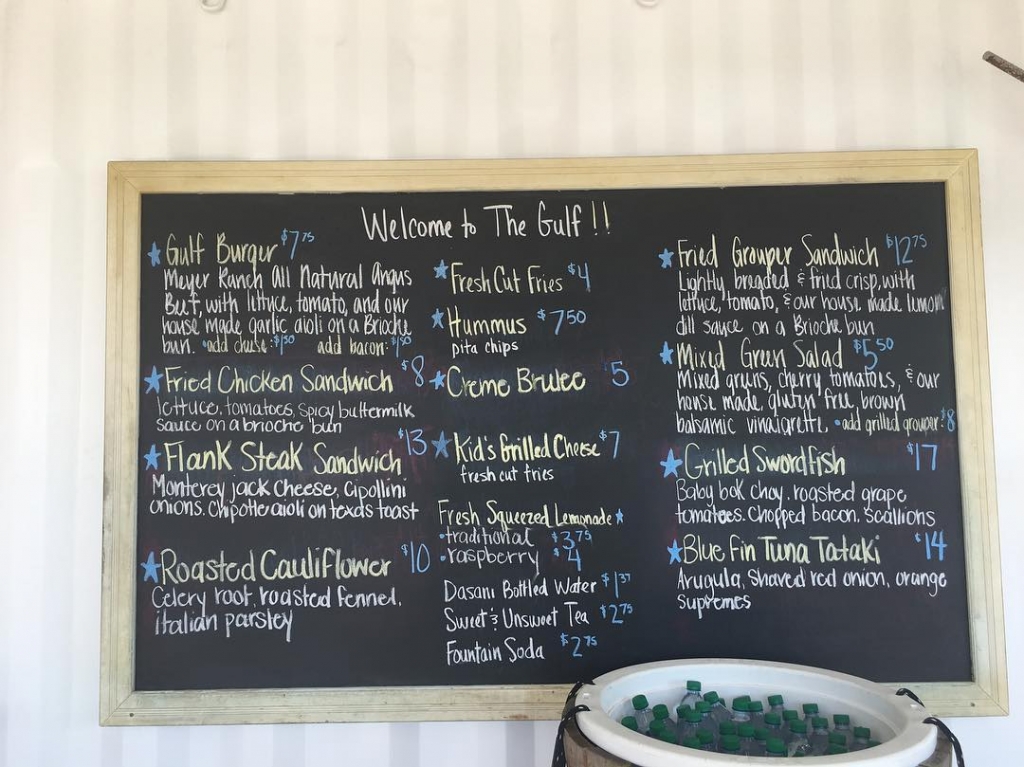 Welcome to The Gulf !!
Gulf Burger $7.75
Meyer Ranch All Natural Angus
Beef, with lettuce, tomato, and our
house made garlic aioli on a Brioche
bun. •add cheese: $1.50 add bacon: $1.50
Fried Chicken Sandwich $8
lettuce, tomatoes, spicy buttermilk
sauce on a brioche bun
Flank Steak Sandwich $13
Monterey jack cheese, Cipollini
onions. Chipotle aioli on texas toast
Roasted Cauliflower $10
Celery root, roasted fennel,
italian parsley
Fresh Cut Fries $4
Hummus $7.50
pita chips
Creme Brulee $5
Kid's Grilled Cheese $7
fresh cut fries
Fresh Squeezed Lemonade
•traditional $3.75
•raspberry $4
Dasani Bottled Water $1.37
Sweet & Unsweet Tea $2.75
Fountain Soda $2.75
Fried Grouper Sandwich $12.75
Lightly breaded & fried crisp, with
lettuce, tomato, & our house made lemon
dill sauce on a Brioche bun
Mixed Green Salad $5.50
Mixed greens, cherry tomatoes, & our
house made, gluten free, brown
balsamic vinaigrette. •add grilled grouper: $8
Grilled Swordfish $17
Baby bok choy, roasted grape
tomatoes. Chopped bacon. scallions
Blue Fin Tuna Tataki $14
Arugula, Shaved red onion, orange
supremes